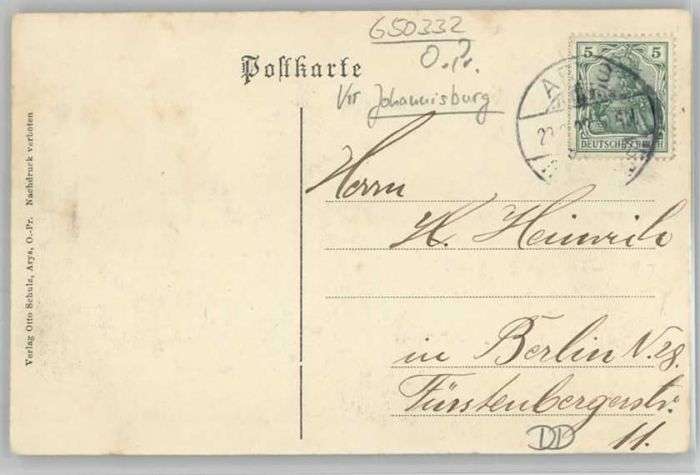 650332
O.P.
Kr Johannisburg
Postkarte
5 5
DEUTSCHES REICH
Herrn
H. Heinrich
in Berlin
Fürstenbergerstr.
11.
DD
Verlag Otto Schulz, Arys, O.-Pr. Nachdruck verboten